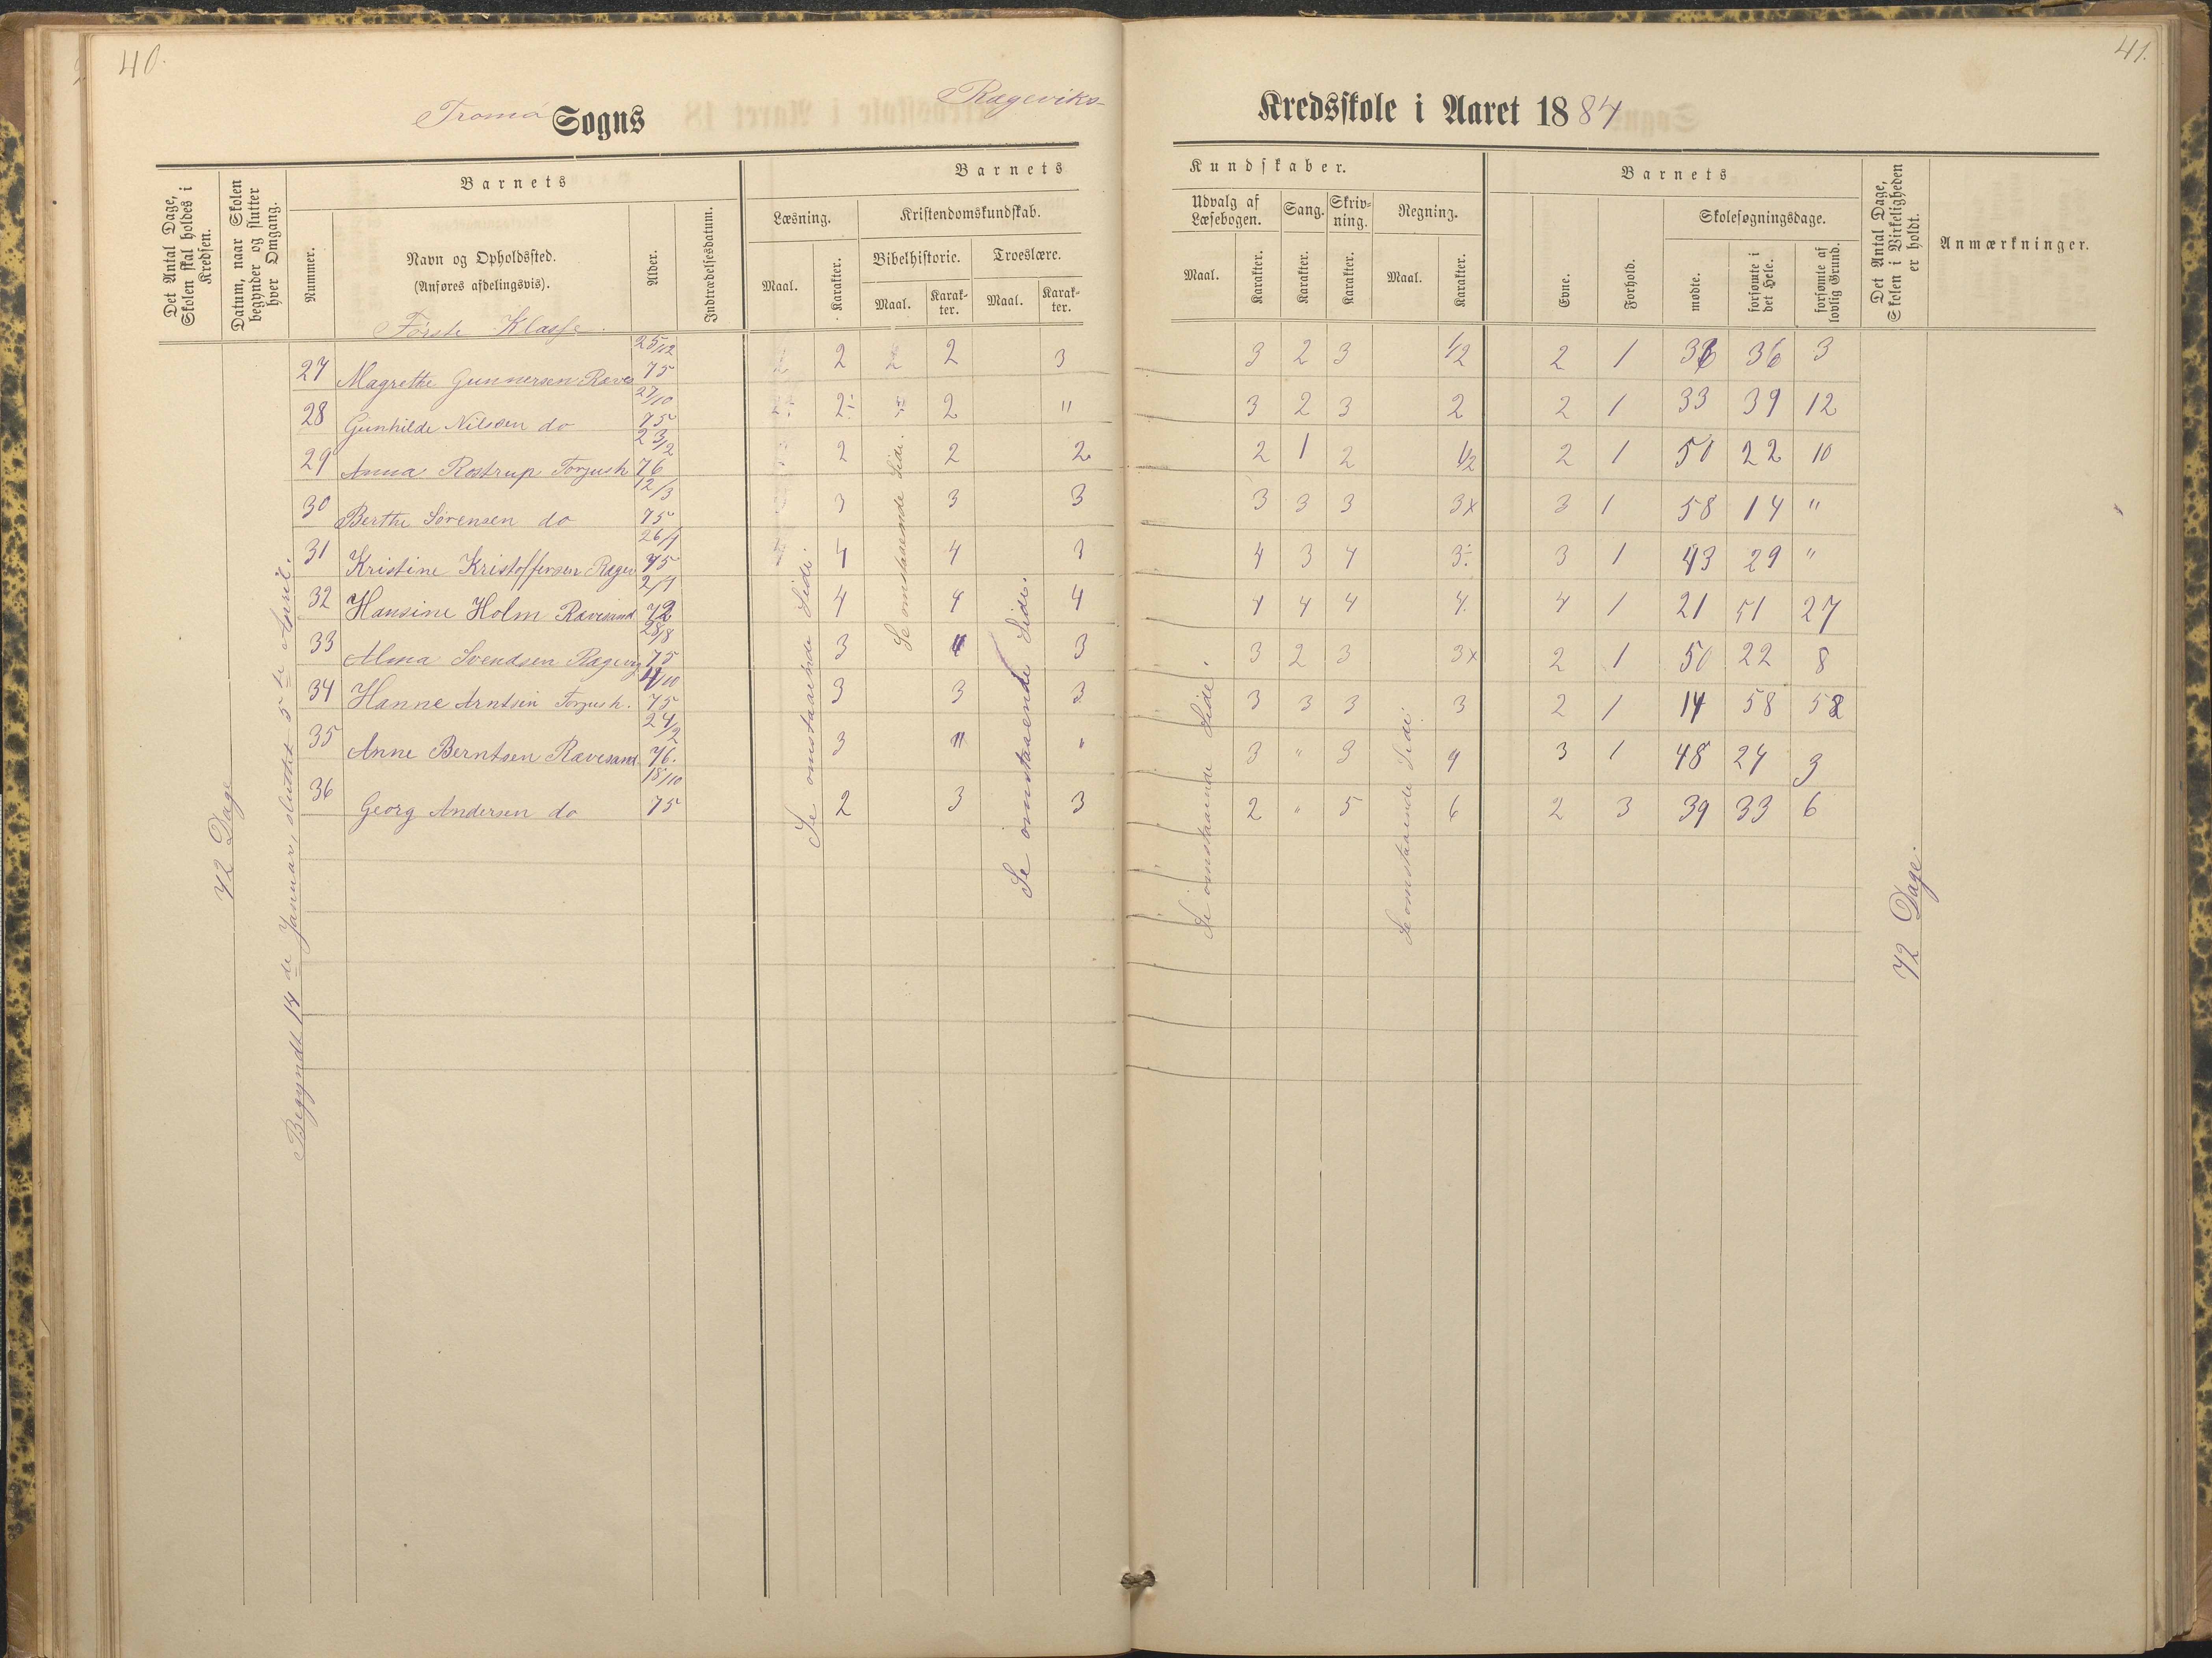 40.
Tromø Sogns
Rægeviks-
Kredsskole i Aaret 1884
41.
Det Antal Dage, Skolen skal holdes i Kredsen.
Datum, naar Skolen begynder og slutter hver Omgang.
Barnets
Nummer.
Navn og Opholdssted.
(Anføres afdelingsvis).
Alder.
Indtrædelsesdatum.
Barnets Kundskaber.
Læsning.
Maal.
Karakter.
Kristendomskundskab.
Bibelhistorie.
Maal.
Karakter.
Troeslære.
Maal.
Karakter.
Udvalg af Læsebogen.
Maal.
Karakter.
Sang.
Karakter.
Skrivning.
Karakter.
Regning.
Maal.
Karakter.
Barnets
Evne.
Forhold.
Skolesøgningsdage.
mødte.
forsømte i det Hele.
forsømte af lovlig Grund.
Det Antal Dage, Skolen i Virkeligheden er holdt.
Anmærkninger.
Første Klasse.
27 Magrethe Gunnersen Raves 25/12 75 2 2 3 3 2 3 1/2 2 1 36 36 3
28 Gunhilde Nilssen do 27/10 75 2÷ 2 " 3 2 3 2 2 1 33 39 12
29 Anna Rostrup Torjush 23/2 76 2 2 2 2 1 2 1/2 2 1 50 22 10
30 Berthe Sørensen do 12/3 75 3 3 3 3 3 3 3x 3 1 58 14 "
31 Kristine Kristoffersen Rægev 75 4 4 3 4 3 4 3÷ 3 1 43 29 "
32 Hansine Holm Ravesand 72 4 4 4 4 4 4 4 4 1 21 51 27
33 Alma Svendsen Rægevig 28/8 75 3 3 3 2 3 3x 2 1 50 22 8
34 Hanne Arntsen Torjush. 75 3 3 3 3 3 3 3 2 1 14 58 58
35 Anne Berntsen Ravesand 24/2 76. 3 " " 3 " 3 4 3 1 48 24 3
36 Georg Andersen do 18/10 75 2 3 3 2 " 5 6 2 3 39 33 6
72 Dage
Begyndt 14de Januar, sluttet 5te April.
Se omstaaende Side.
Se omstaaende Side.
Se omstaaende Side.
Se omstaaende Side.
Se omstaaende Side.
72 Dage.